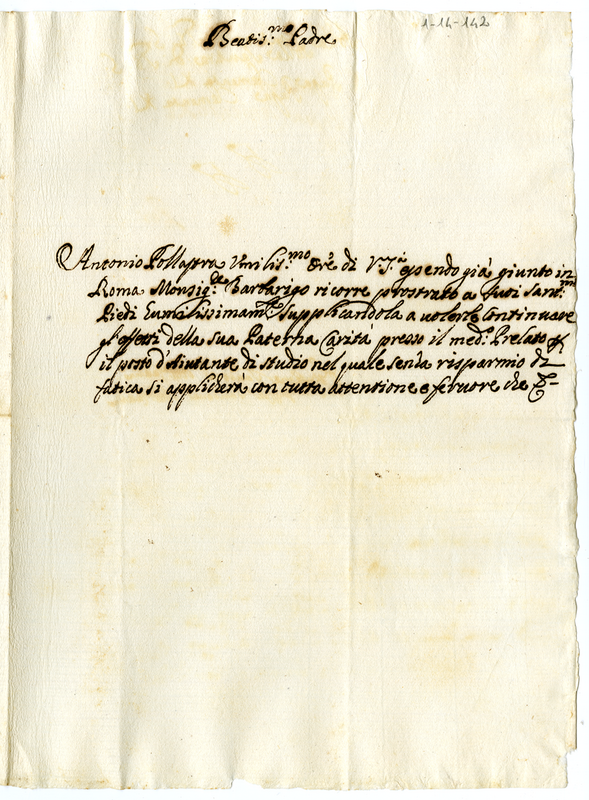 1-14-142
Beatis.mo Padre
Antonio Pollastra Umilis.mo Ore di V.S.a essendo già giunto in
Roma Monsig.r Barbarigo ricorre prostrato a suoi Sant.mi
Piedi humilissimam.te supplicandola a volerle Continuare
gl'effetti della sua Paterna Carità presso il med.o Prelato
il posto d'Aiutante di studio nel quale senza risparmio di
fatica si applicherà con tutta attentione e fervore che